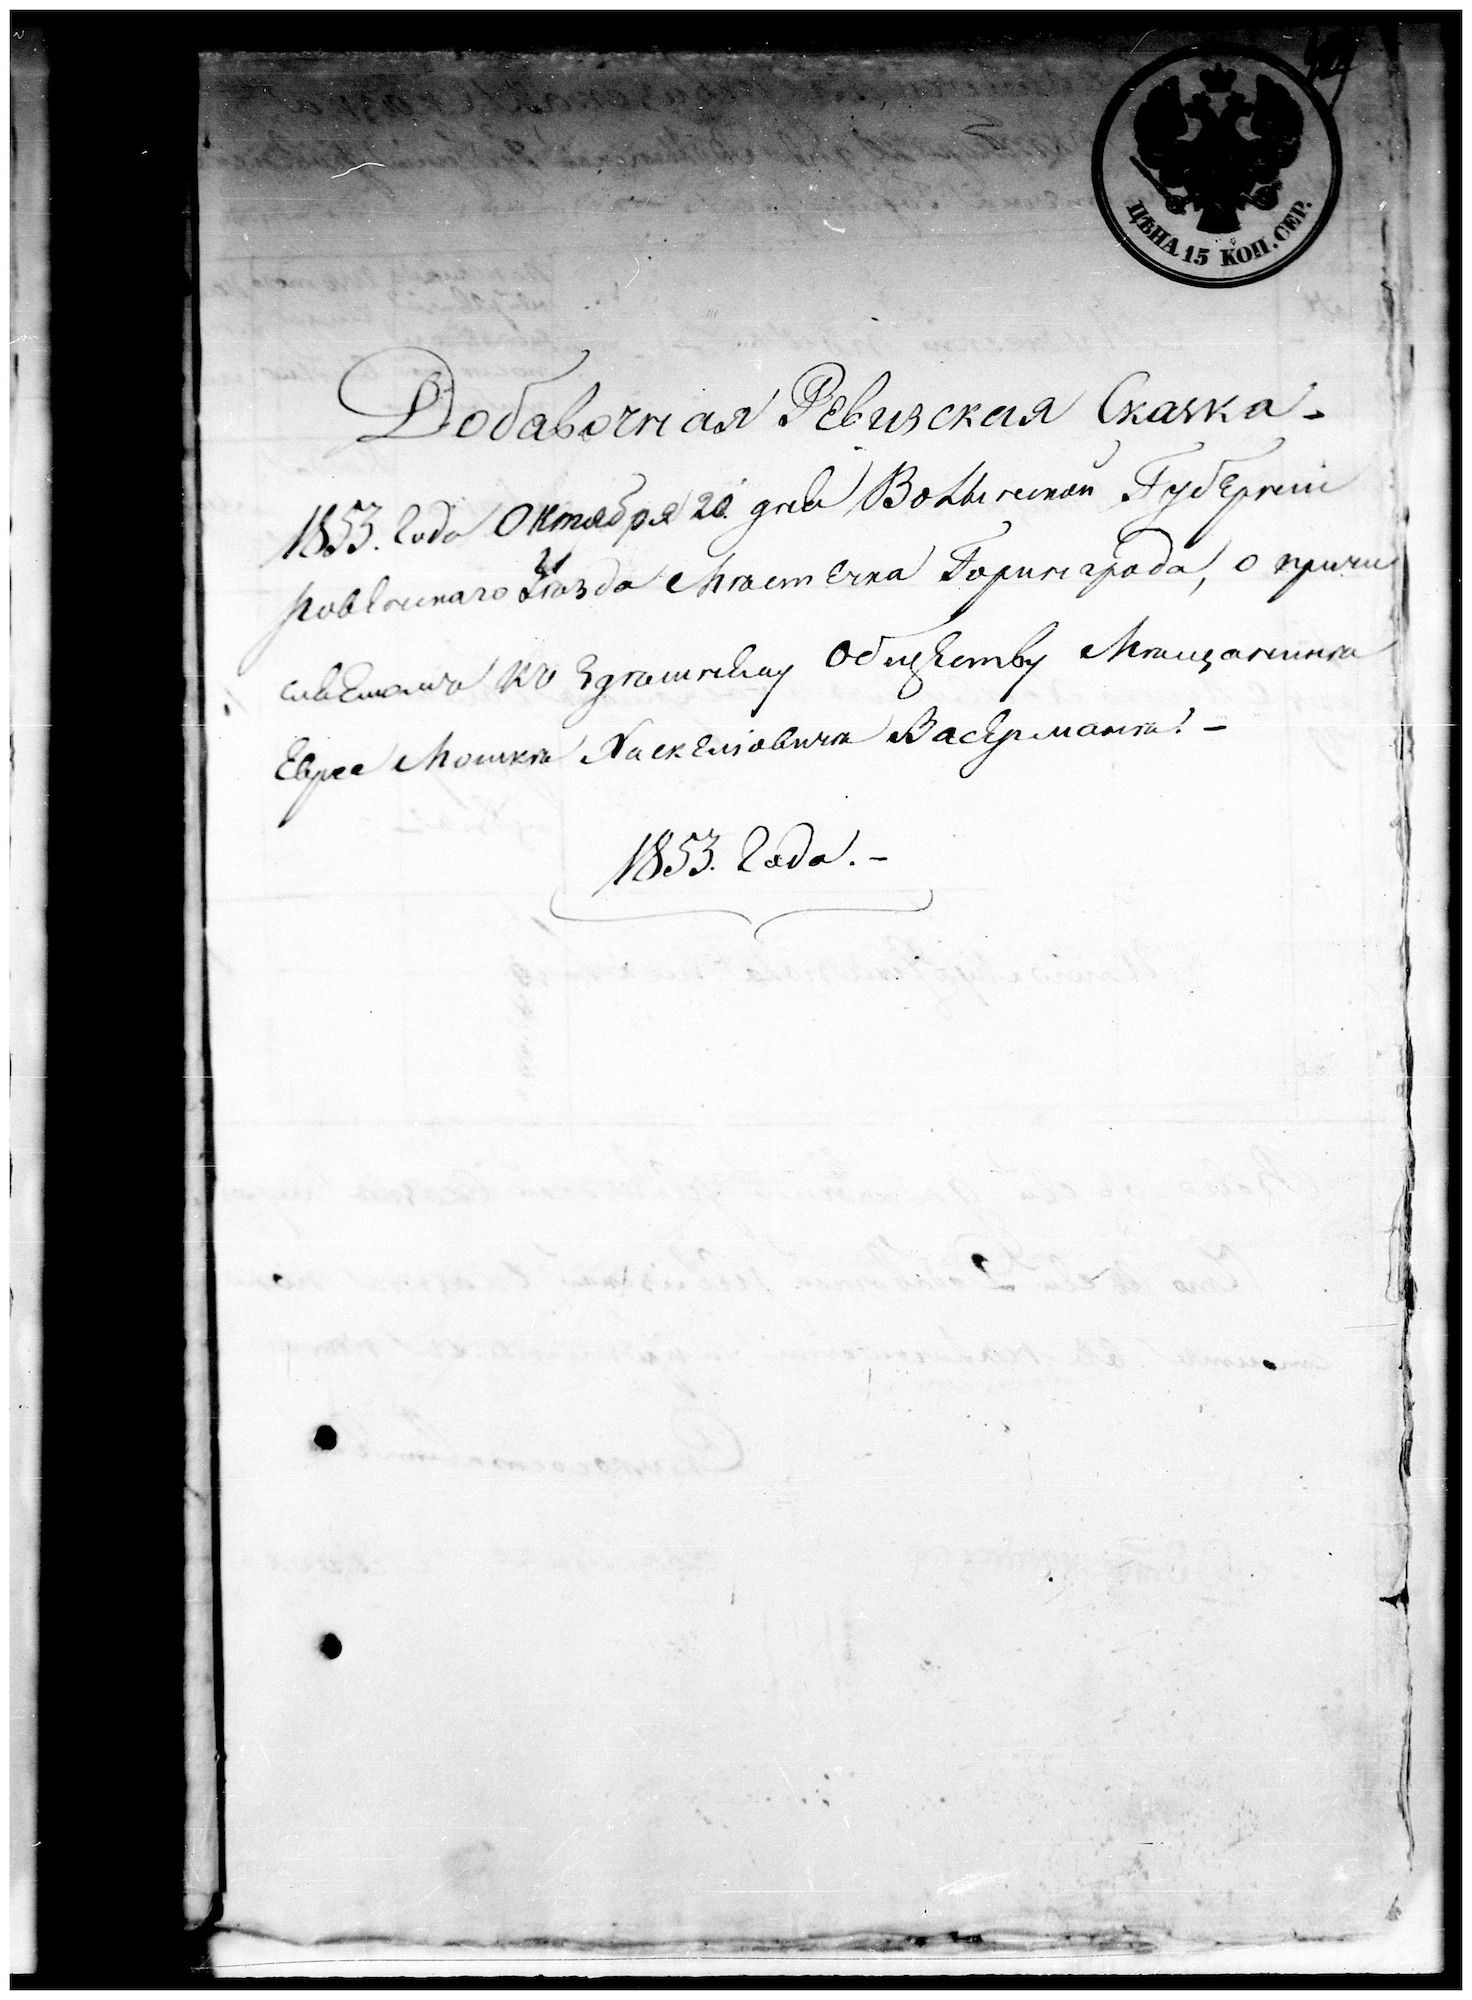 ЦѢНА 15 КОП. СЕР.
Добавочная Ревизская Сказка –
1853. Года Октября 20. дня Волынской Губерніи
Ровенскаго Уѣзда Мѣстечка Горинграда, о причи
сляемомъ къ здѣшнему Обществу Мѣщанина
Еврея Мошка Хаскелiовича Васермана. –
1853. Года. –